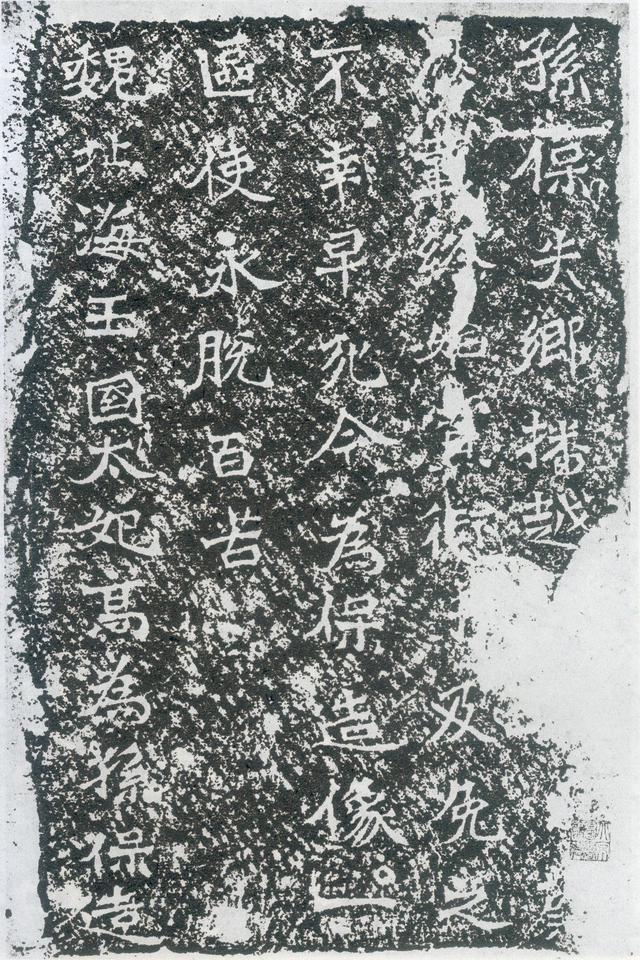 孫保夫鄉播越
終始及免之
不幸早死今為保造像一
區使永脫百苦
魏北海王國太妃高為孫保造